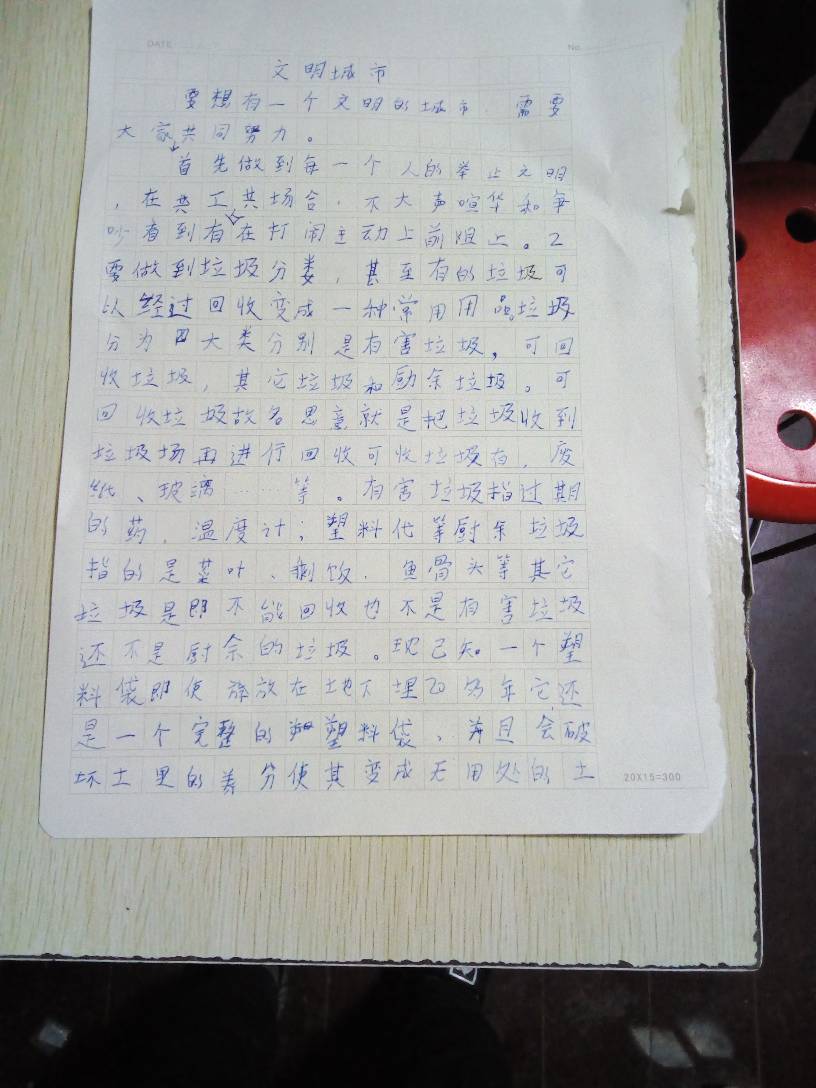 DATE
No.
文明城市
要想有一个文明的城市.需要
大家共同努力。
首先做到每一个人的举止文明
,在共工共场合.不大声喧华和争
吵看到有在打闹主动上前阻止。2
要做到垃圾分类,甚至有的垃圾可
以经过回收变成一种常用用品。垃圾
分为四大类分别是有害垃圾,可回
收垃圾,其它垃圾和厨余垃圾。可
回收垃圾故名思意就是把垃圾收到
垃圾场再进行回收可收垃圾有,废
纸、玻璃……等。有害垃圾指过期
的药,温度计;塑料代等厨余垃圾
指的是菜叶、剩饭.鱼骨头等其它
垃圾是即不能回收也不是有害垃圾
还不是厨余的垃圾。现已知一个塑
料袋即使放在地下埋20多年它还
是一个完整的塑料袋、并且会破
坏土里的养分使其变成无用处的土
20X15=300